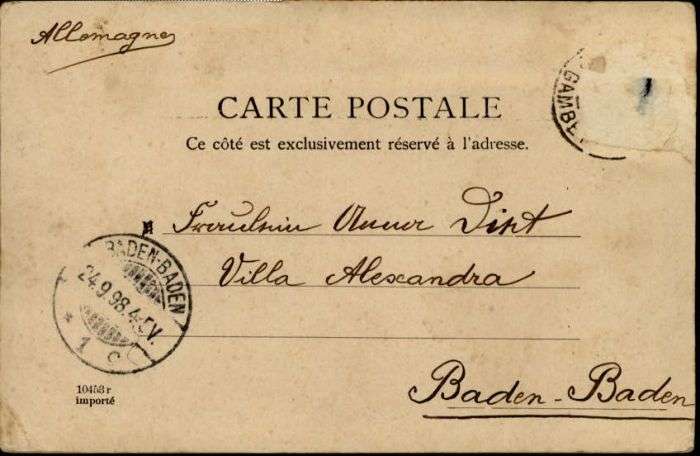 Allemagne
GAMBE
CARTE POSTALE
Ce côté est exclusivement réservé à l'adresse.
Fräulein Anna Dist
Villa Alexandra
BADEN-BADEN
24.9.98.4-5V.
* 1 c
10453 r
importé
Baden-Baden